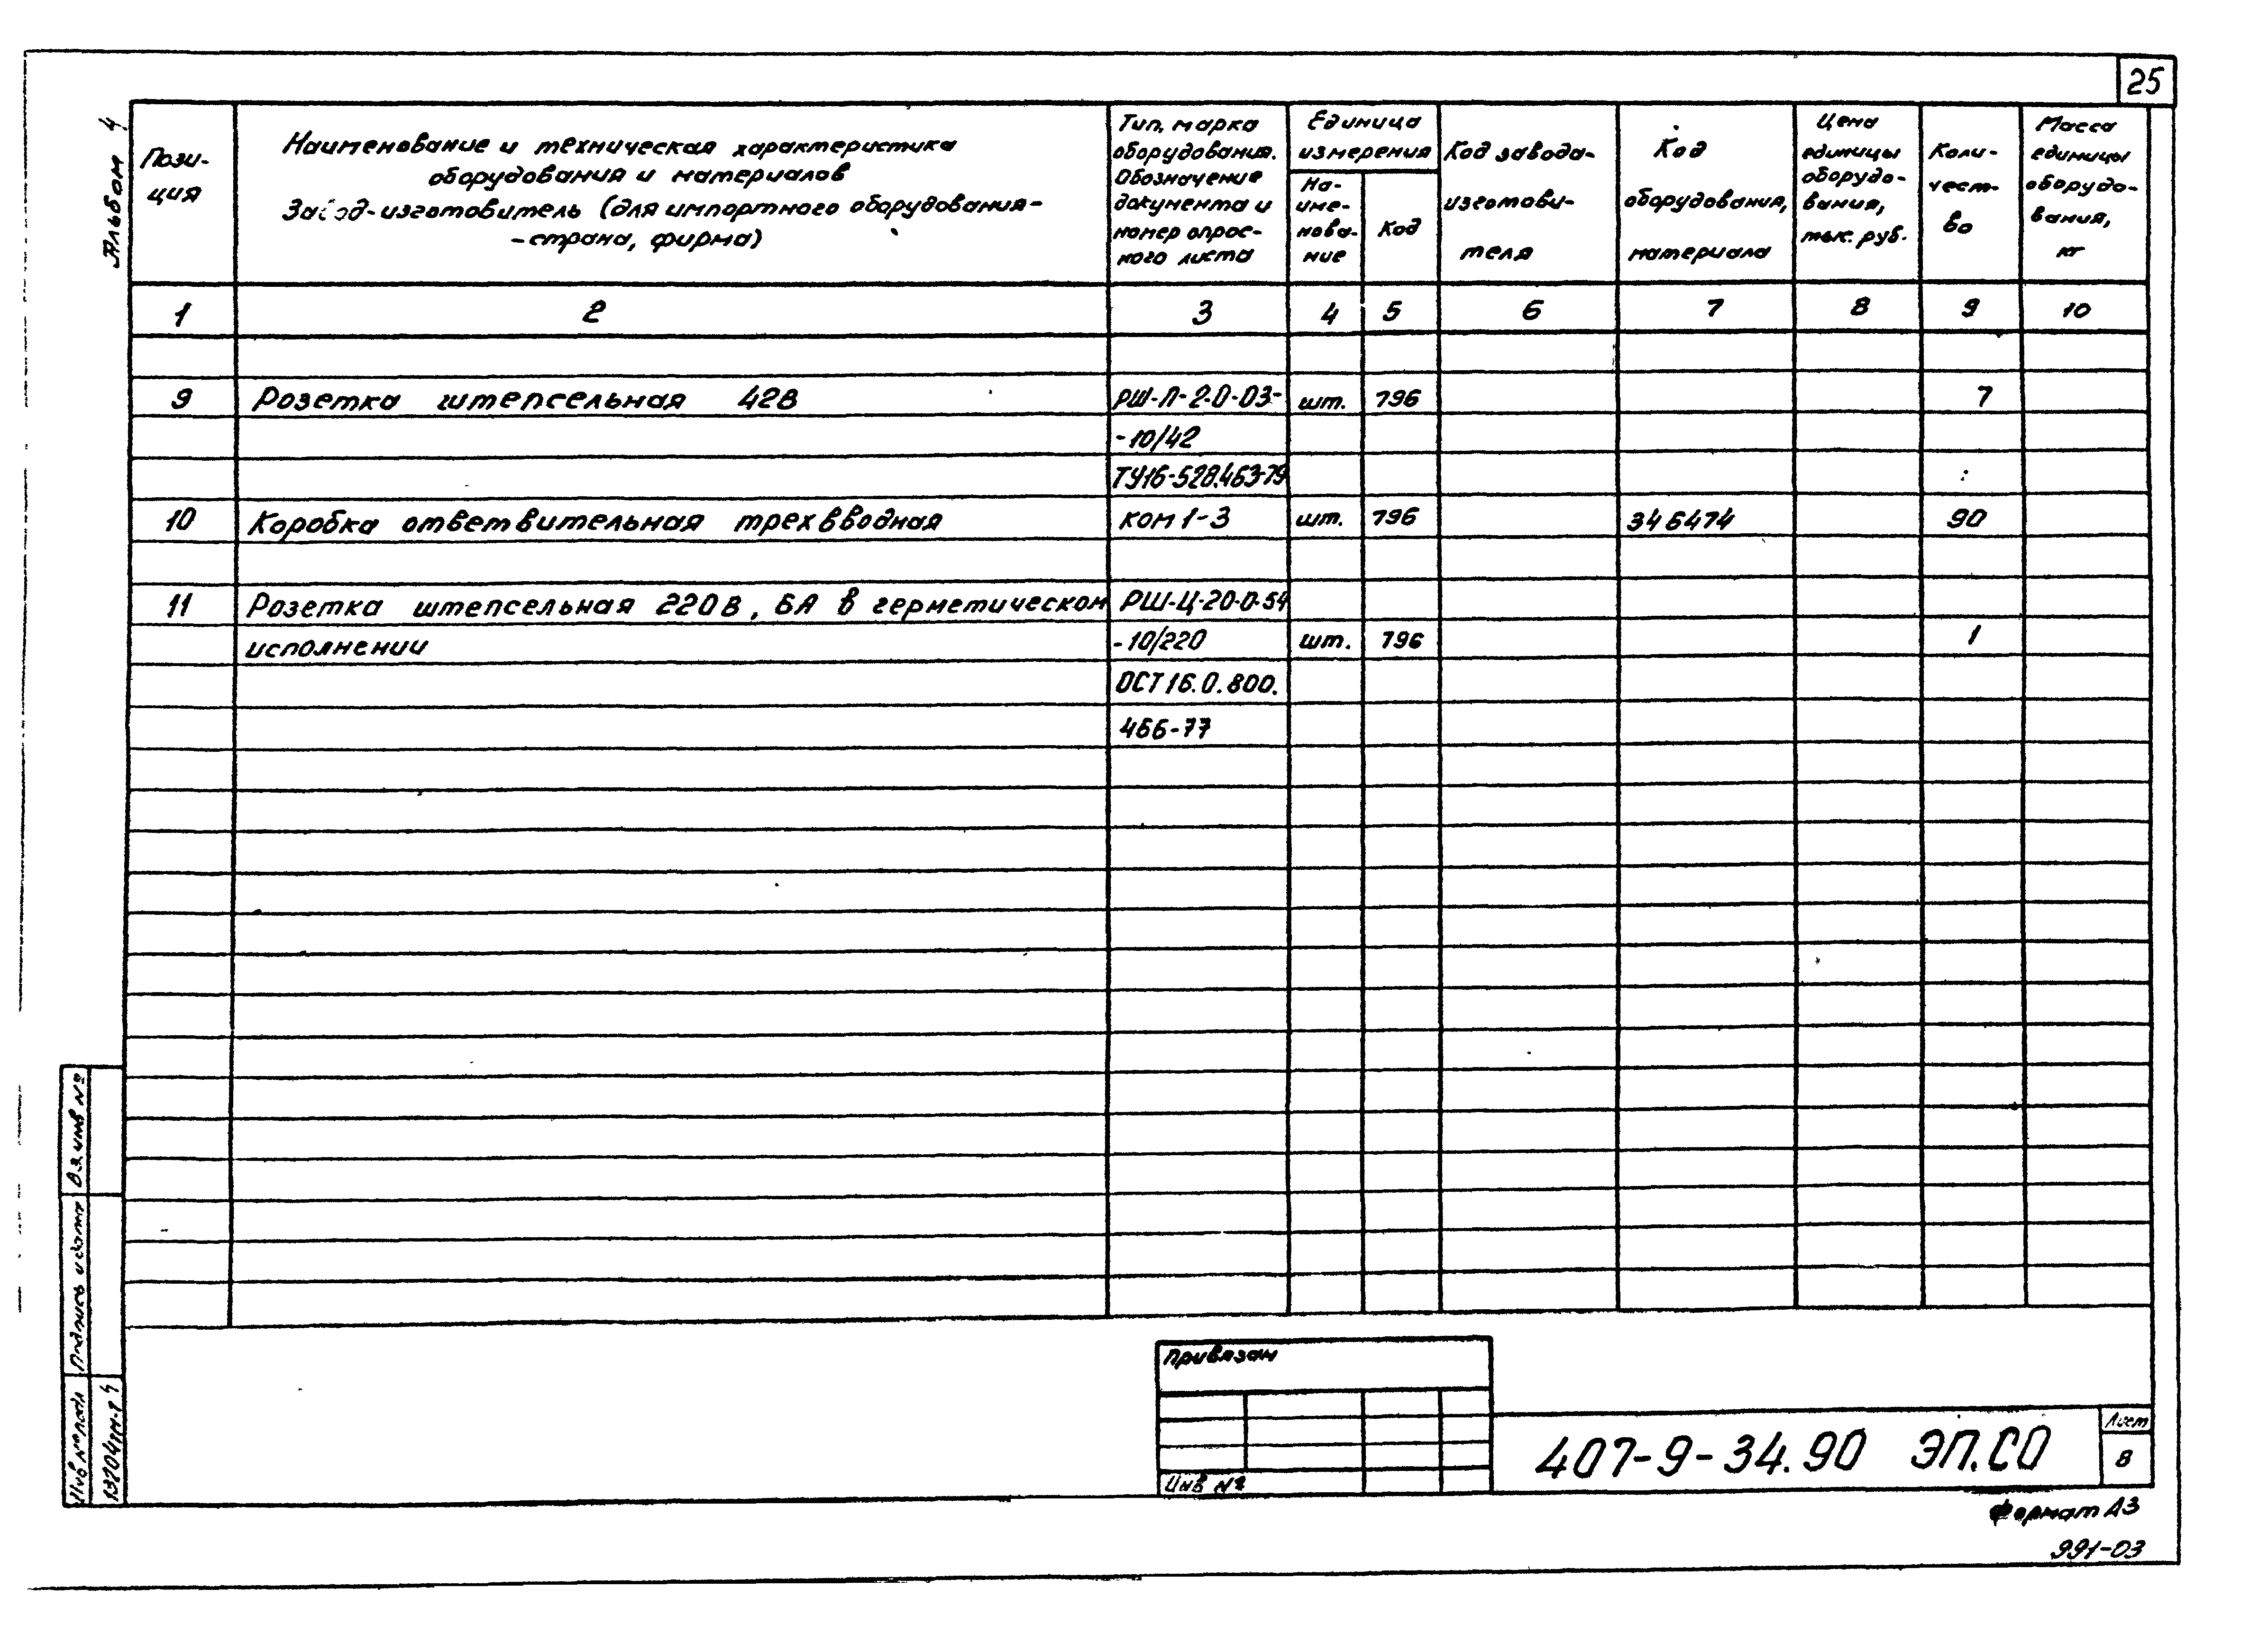 25
Альбом 4
Пози-
ция
Наименование и техническая характеристика
оборудования и материалов
Завод-изготовитель (для импортного оборудования-
-страна, фирма)
Тип, марка
оборудования.
Обозначение
документа и
номер опрос-
ного листа
Единица
измерения
На-
име-
нова-
ние
Код
Код завода-
изготови-
теля
Код
оборудования,
материала
Цена
единицы
оборудо-
вания,
тыс. руб.
Коли-
чест-
во
Масса
единицы
оборудо-
вания,
кг
1 2 3 4 5 6 7 8 9 10
9 Розетка штепсельная 42В РШ-П-2-0-03- шт. 796 7
-10/42
ТУ16-528.463-79
10 Коробка ответвительная трехвводная ком 1-3 шт. 796 346474 90
11 Розетка штепсельная 220В, 6А в герметическом РШ-Ц-20-0-54
исполнении -10/220 шт. 796 1
ОСТ16.0.800.
466-77
Вз.инв №
Подпись и дата
Инв № подл
13204тм-т 4
Привязан
Инв №
407-9-34.90 ЭП.СО
Лист
8
Формат А3
991-03